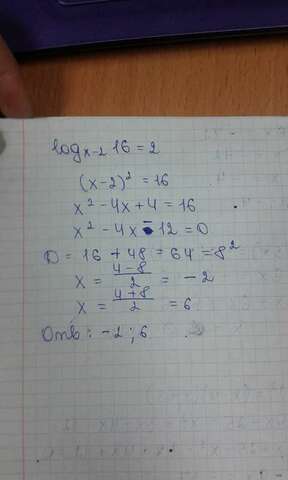 log x-2 16 = 2
(x-2)² = 16
x² - 4x + 4 = 16
x² - 4x - 12 = 0
D = 16 + 48 = 64 = 8²
x = (4-8)/2 = -2
x = (4+8)/2 = 6
Отв: -2; 6